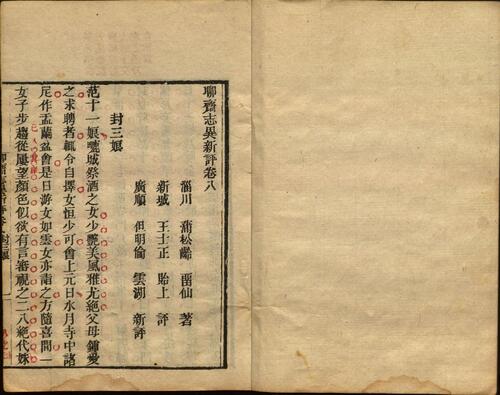 聊齋志異新評卷八
淄川 蒲松齡 畱仙 著
新城 王士正 貽上 評
廣順 但明倫 雲湖 新評
封三娘
范十一娘𪩘城祭酒之女少艷美風雅尤絕父母鍾愛
之求聘者輒令自擇女恒少可會上元日水月寺中諸
尼作盂蘭盆會是日游女如雲女亦詣之方隨喜間一
女子步趨從屢望顏色似欲有言審視之二八絕代姝